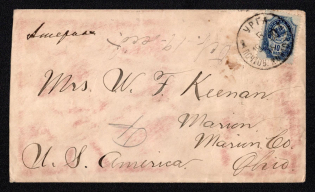 Америка
УРГА
Mrs. W. F. Keenan,
Marion,
Marion Co.
U. S. America. Ohio.